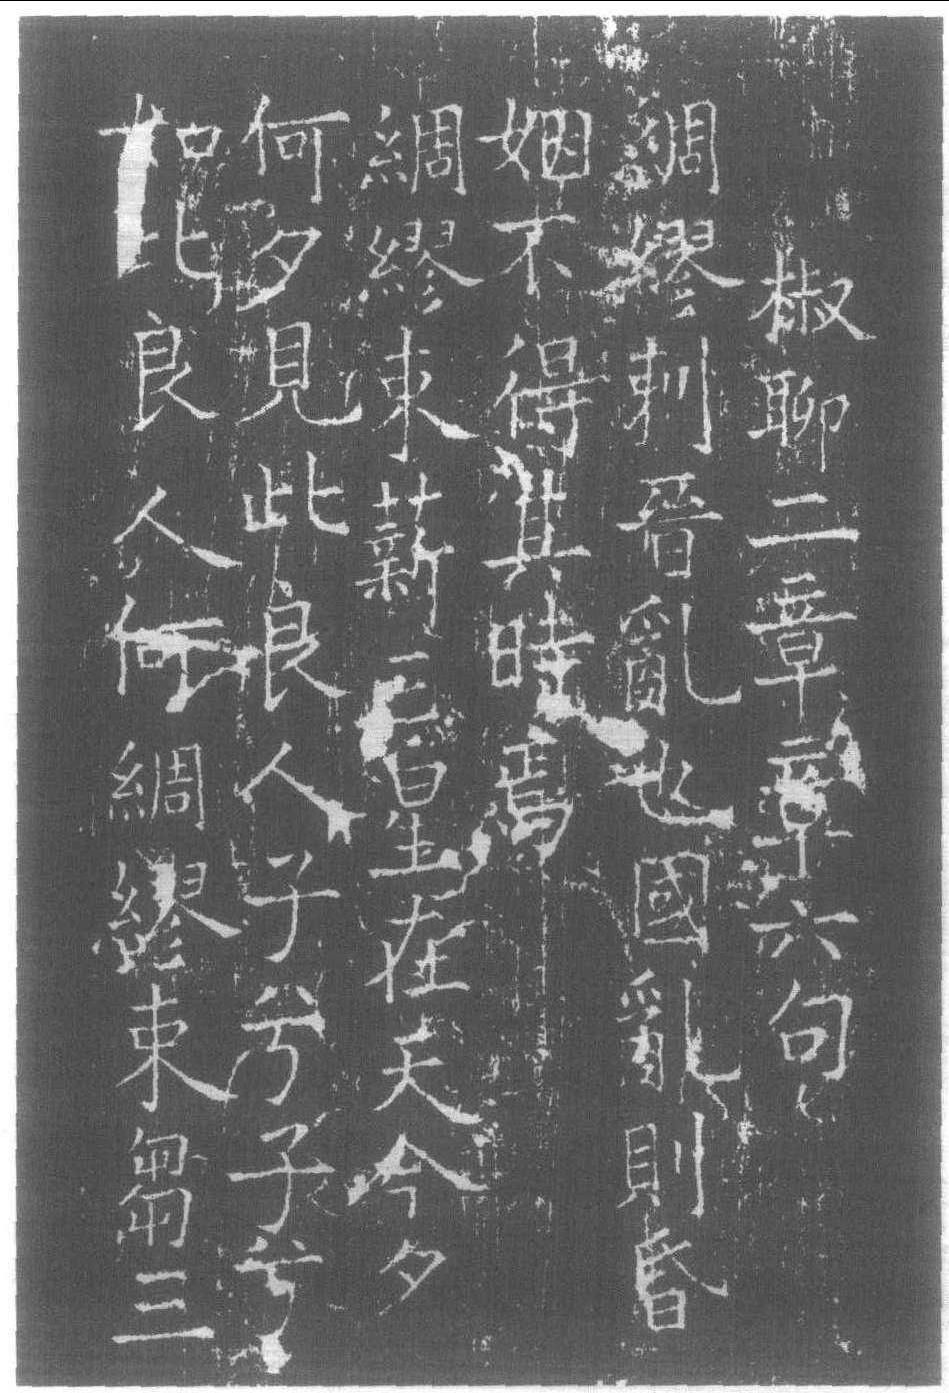 椒聊二章章六句
綢繆刺晉亂也國亂則昏
姻不得其時焉
綢繆束薪三星在天今夕
何夕見此良人子兮子兮
如此良人何綢繆束芻三